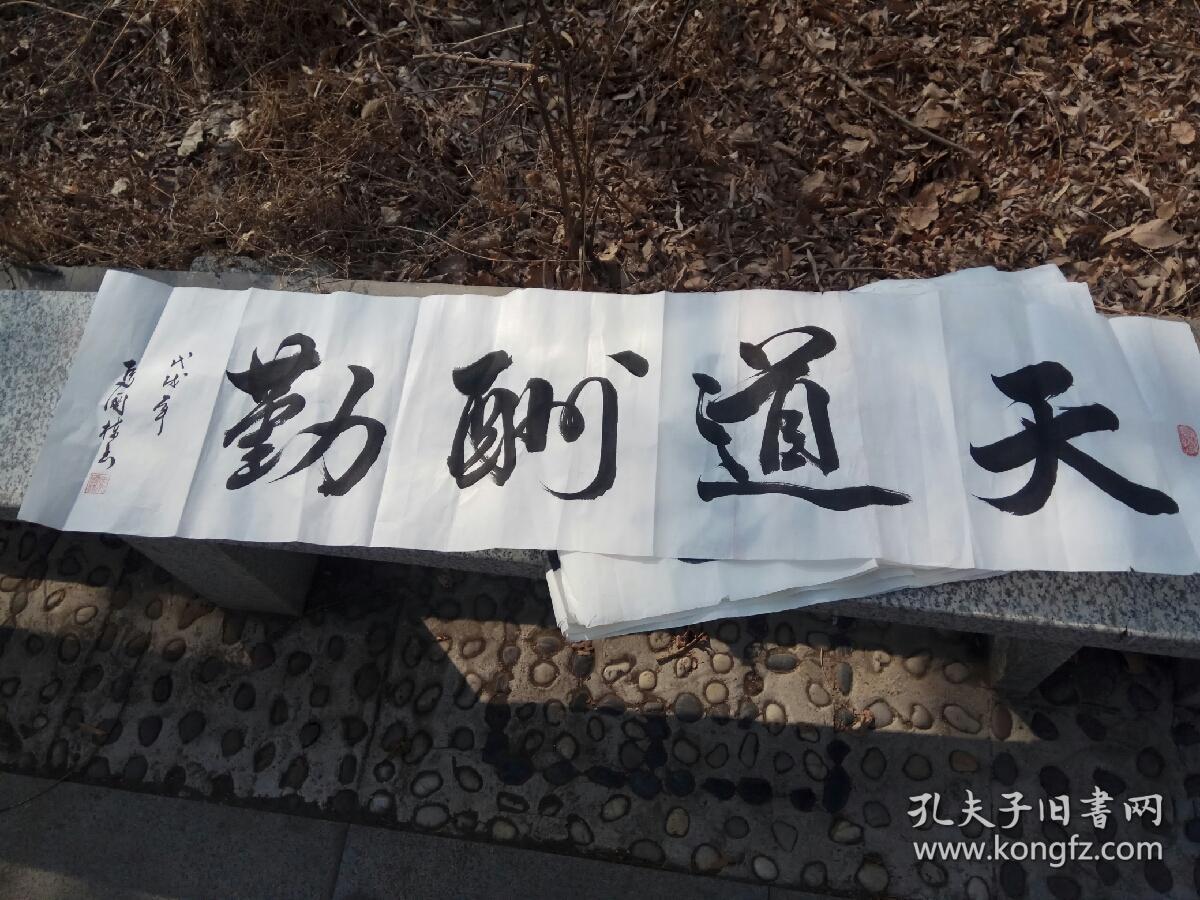 天道酬勤
戊戌年
孔夫子旧書网
www.kongfz.com